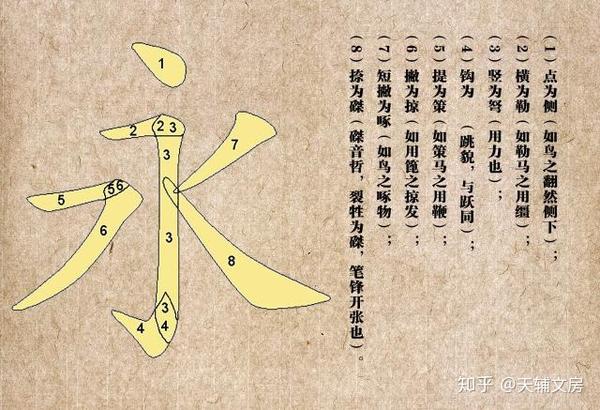 永
1
2
2 3
3
7
5
5 6
6
3
8
3
4
4
(1)点为侧(如鸟之翻然侧下);
(2)横为勒(如勒马之用缰);
(3)竖为弩(用力也);
(4)钩为　(跳貌,与跃同);
(5)提为策(如策马之用鞭);
(6)撇为掠(如用篦之掠发);
(7)短撇为啄(如鸟之啄物);
(8)捺为磔(磔音哲,裂牲为磔,笔锋开张也)。
知乎 @天辅文房